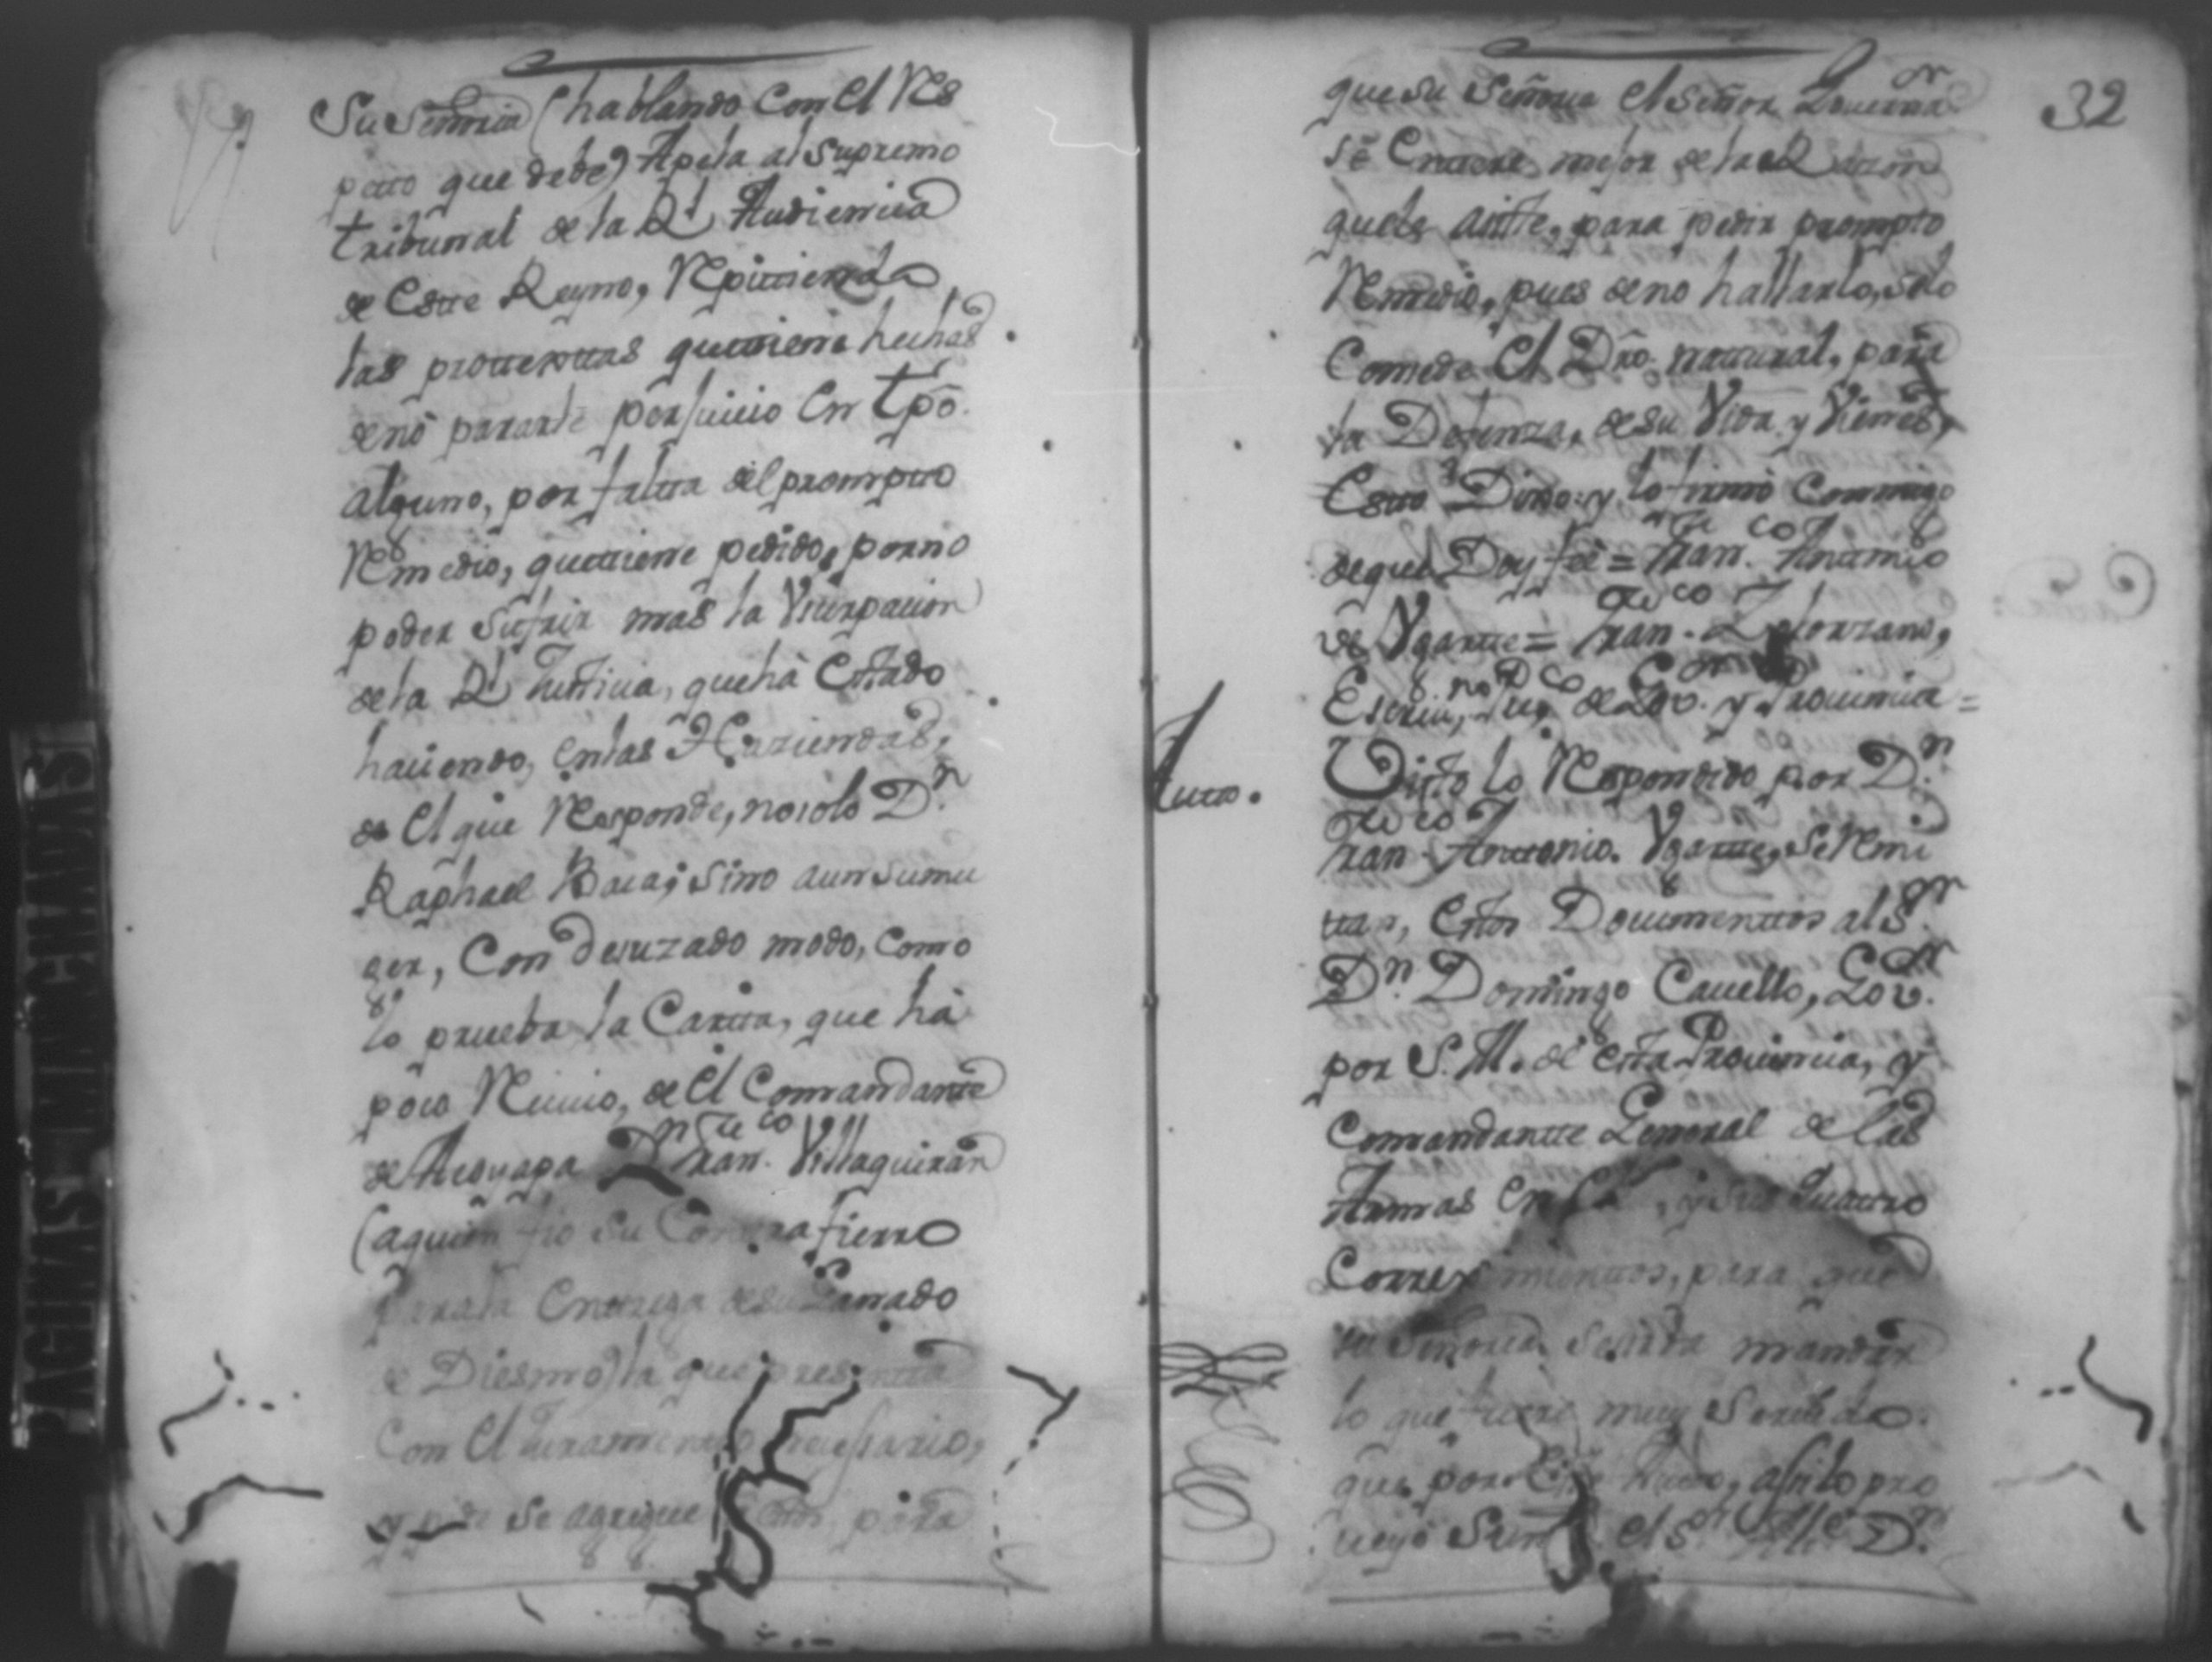 Su Señoria (hablando Con El Res
petto que debe) Apela al Supremo
tribunal de la Rl Audiencia
de Estte Reyno, Repittiendo
las prottexttas que ttiene hechas
de nó pararle perjuicio En tpõ.
alguno, por faltta del promptto
Remedio, que ttiene pedido, por no
poder Sufrir mas la Vsurpacion
de la Rl Justicia, que há Estado
haciendo, en las Haziendas,
de El que Responde, no solo Dn.
Raphael Baca; Sino aun su mu
ger, Con desuzado modo, Como
lo prueba la Cartta, que há
poco Recivio, de El Comandantte
de Acoyapa Dn. Franco. Villaquiran
(a quien fio su Conttrafierro
para la Enttrega de su Ganado
de Diesmo) la que presentta
Con El Juramentto necessario,
y pide Se agregue para
32
que su Señoria El Señor Governor.
Sẽ Enttere mejor de la Razon
que le asiste, para pedir prompto
Remedio, pues de no hallarlo, solo
Comede El Dro. natural, para
la Defenza, de su Vida y Vienes,
Estto Dixo: y lo firmó Conmigo
de que Doy feé = Franco. Anttonio
de Vgartte = Franco. Solorzano,
Escrivno. Puco. de Govon. y Provincia =
Autto.
Visto lo Respondido por Dn.
Franco. Anttonio Vgartte, Se Remi
ttan, Estos Documenttos al Sr.
Dn. Domingo Cavello, Govr.
por S. M. de esta Provincia, y
Comandantte General de las
Armas En Ella, y sus Quattro
Correximienttos, para que
su Señoria Sesirva mandar
lo que fuere muy Servido.
que por Este Autto, assi lo pro
veyó Sumd. el Sr. Alle. Dn.